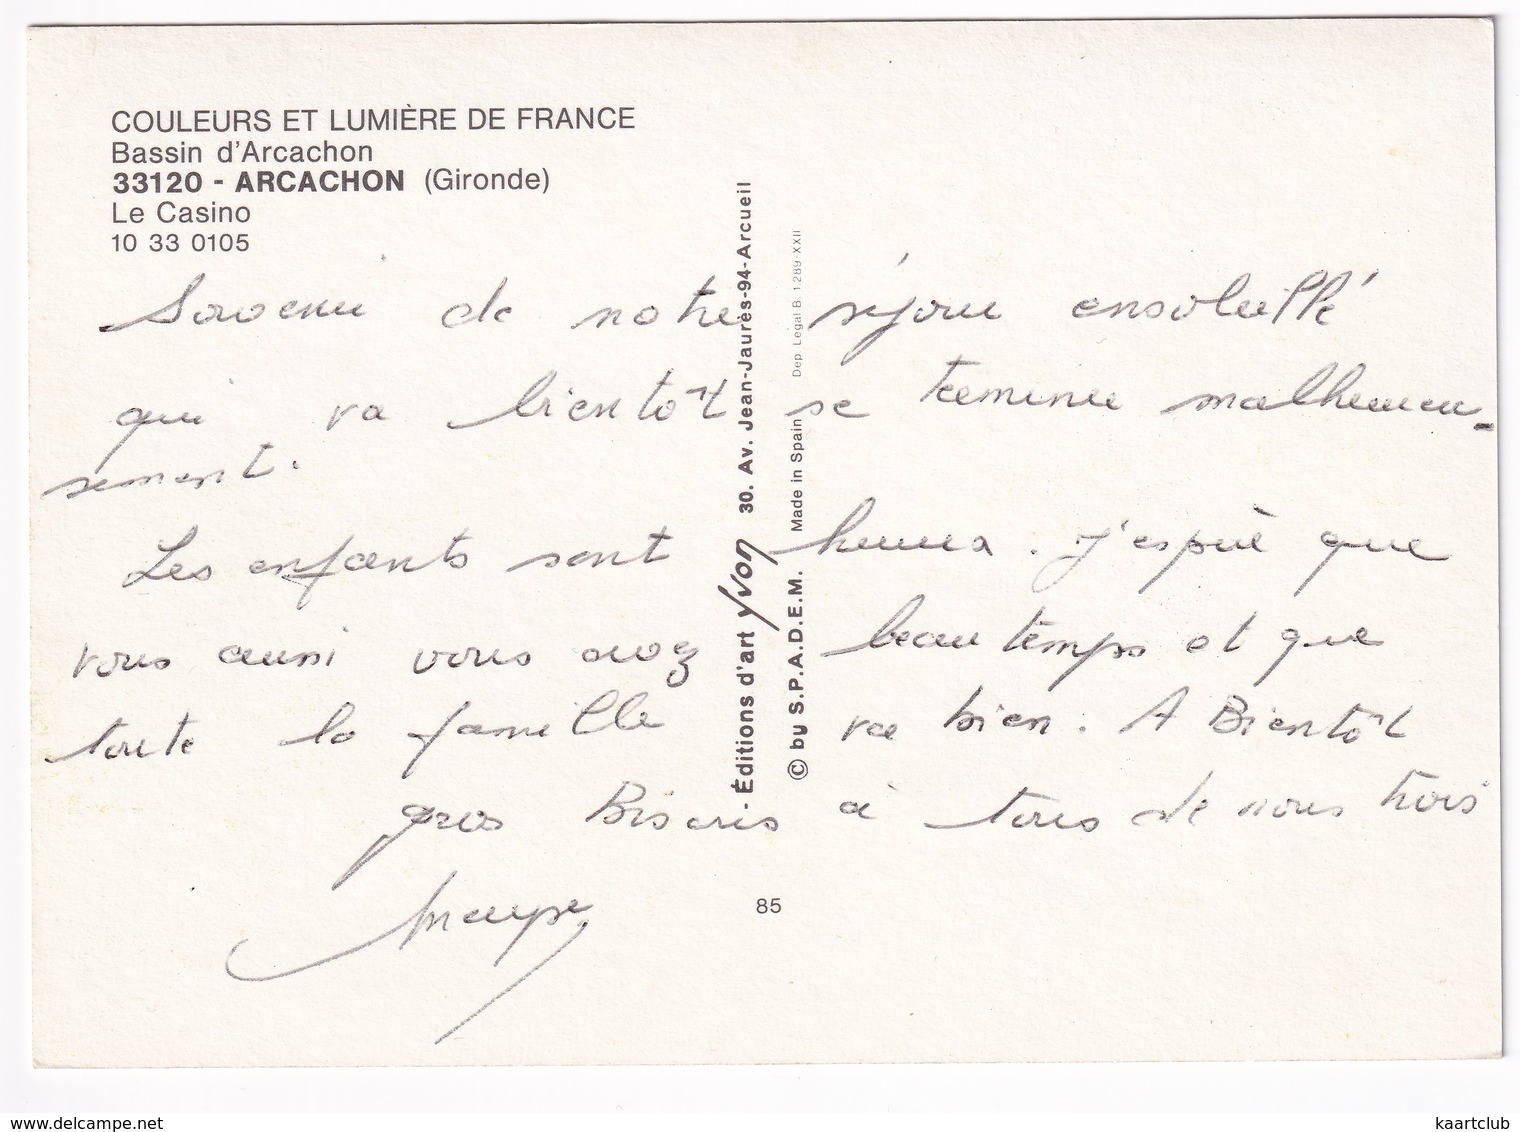 COULEURS ET LUMIÈRE DE FRANCE
Bassin d'Arcachon
33120 - ARCACHON (Gironde)
Le Casino
10 33 0105
Souvenir de notre séjour ensoleillé
qui va bientôt se terminer malheureu-
sement.
Les enfants sont heureux. J'espère que
vous aussi vous avez beau temps et que
toute la famille va bien. A Bientôt
gros Bisous à tous de nous trois
- Éditions d'art Yvon 30. Av. Jean-Jaurès-94-Arcueil
© by S.P.A.D.E.M. Made in Spain Dep. Legal B. 1.289-XXII
85
www.delcampe.net
kaartclub